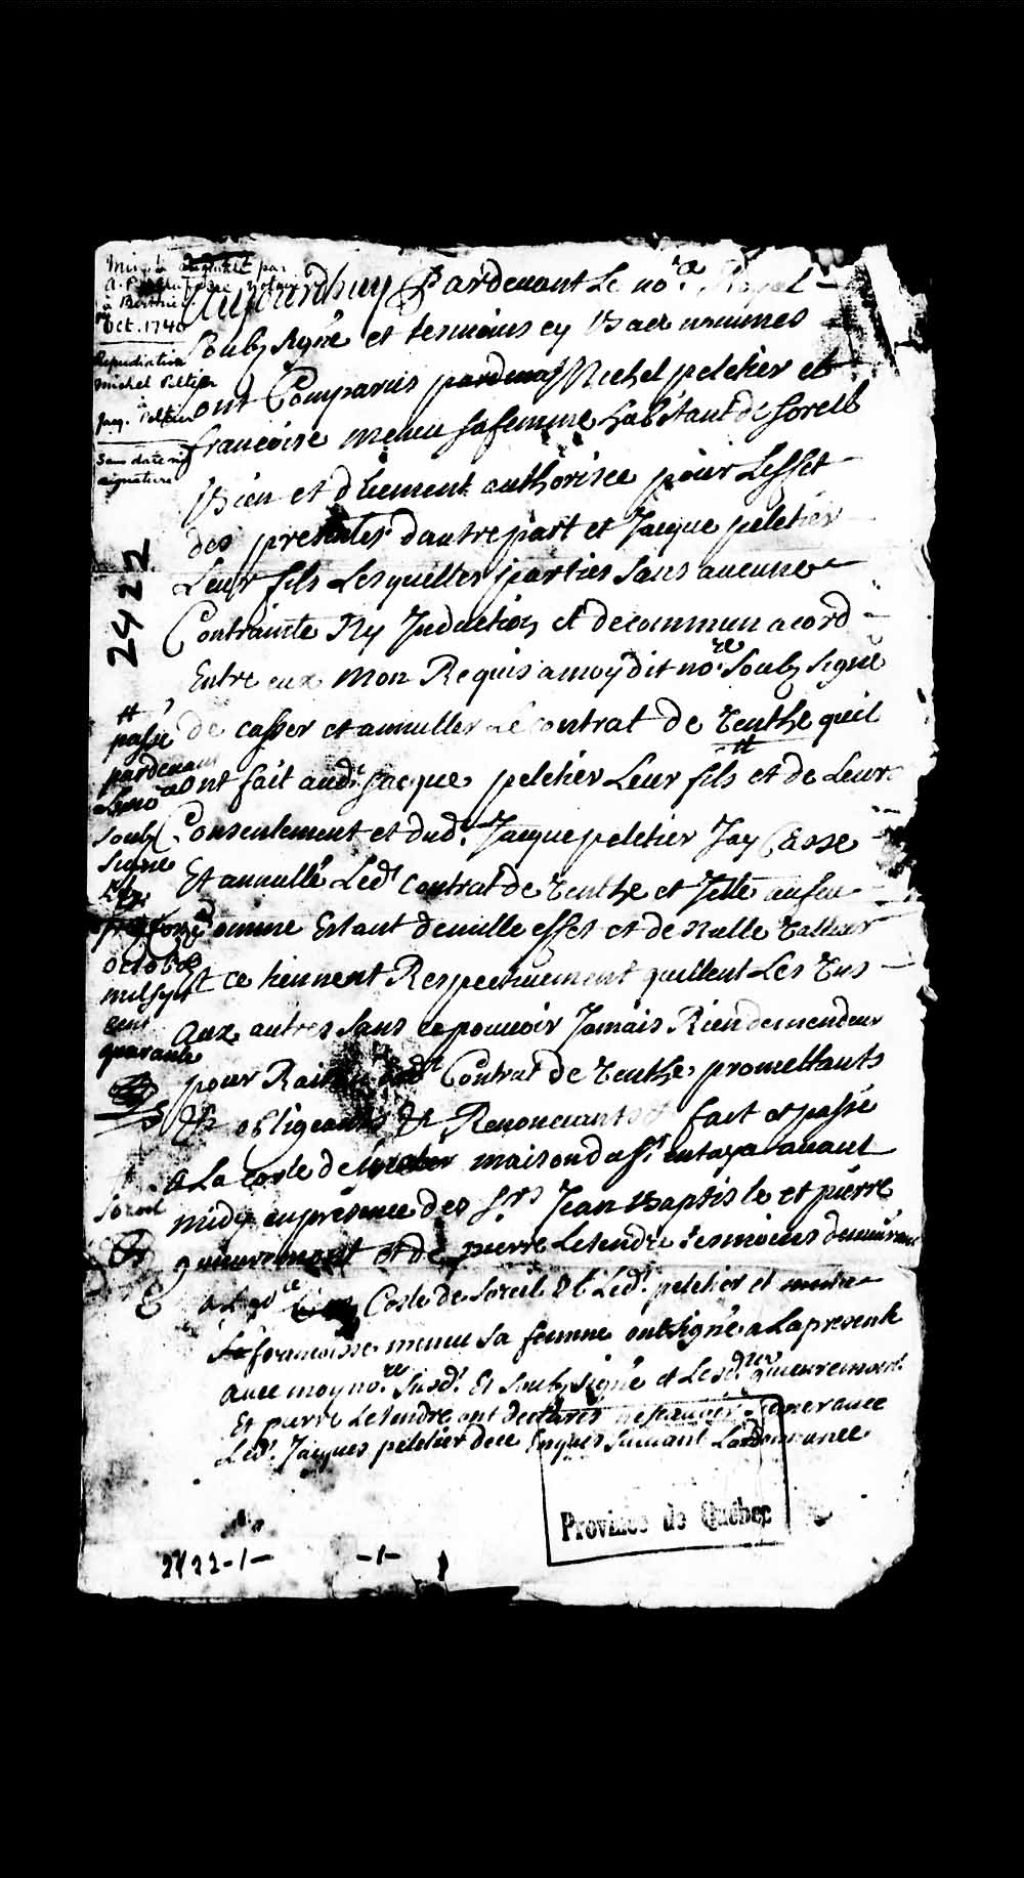 Oct. 1740
Repudiation
Michel Peltier
à
Jacq. Peltier
Sans date ni
signature
2422
Aujourdhuy Pardevant Le no.re Royal
soubz signe et tesmoins cy Bas nommes
ont Comparus Michel peletier et
francoise menu sa femme habitant de sorell
Bien et dhuement authorisee pour Leffet
des presentes dautre part et Jacque peletier
Leur fils Lesquelles parties sans aucune
Contrainte Ny Induction et de commun acord
Entre eux mon Requis a moy dit no.re soubz signe
de casser et annuller Le contrat de quil
ont fait aud.t Jacque peletier Leur fils et de Leur
Consentement et dud.t Jacque peletier Jay Casse
Et annullé Led.t contrat de et
comme Estant de nulle effet et de Nulle
Et ce tiennent Respectivement quittent Les uns
aux autres sans ce pouvoir Jamais Rien demender
pour Raison dud.t Contrat de promettants
&c obligeants &c Renoncants &c fait et passé
a La coste de maison du s.r avant
midy en présence des s.rs Jean Baptiste et pierre
et de pierre Letendre tesmoins demeurant
Coste de soreil Et Led.t peletier et
francoise menu sa femme ont signé a La presente
avec moy no.re susd.t Et soubz signé et Lesd.
Et pierre Letendre ont declaré ne scavoir signer avec
Led.t Jacques peletier de ce Enquis suivant Lordonnance
passé
pardevant
Le no.re
soubz
signe
octobre
mil sept
cent
quarante
sorel
Province de Québec
2422-1-
-1-